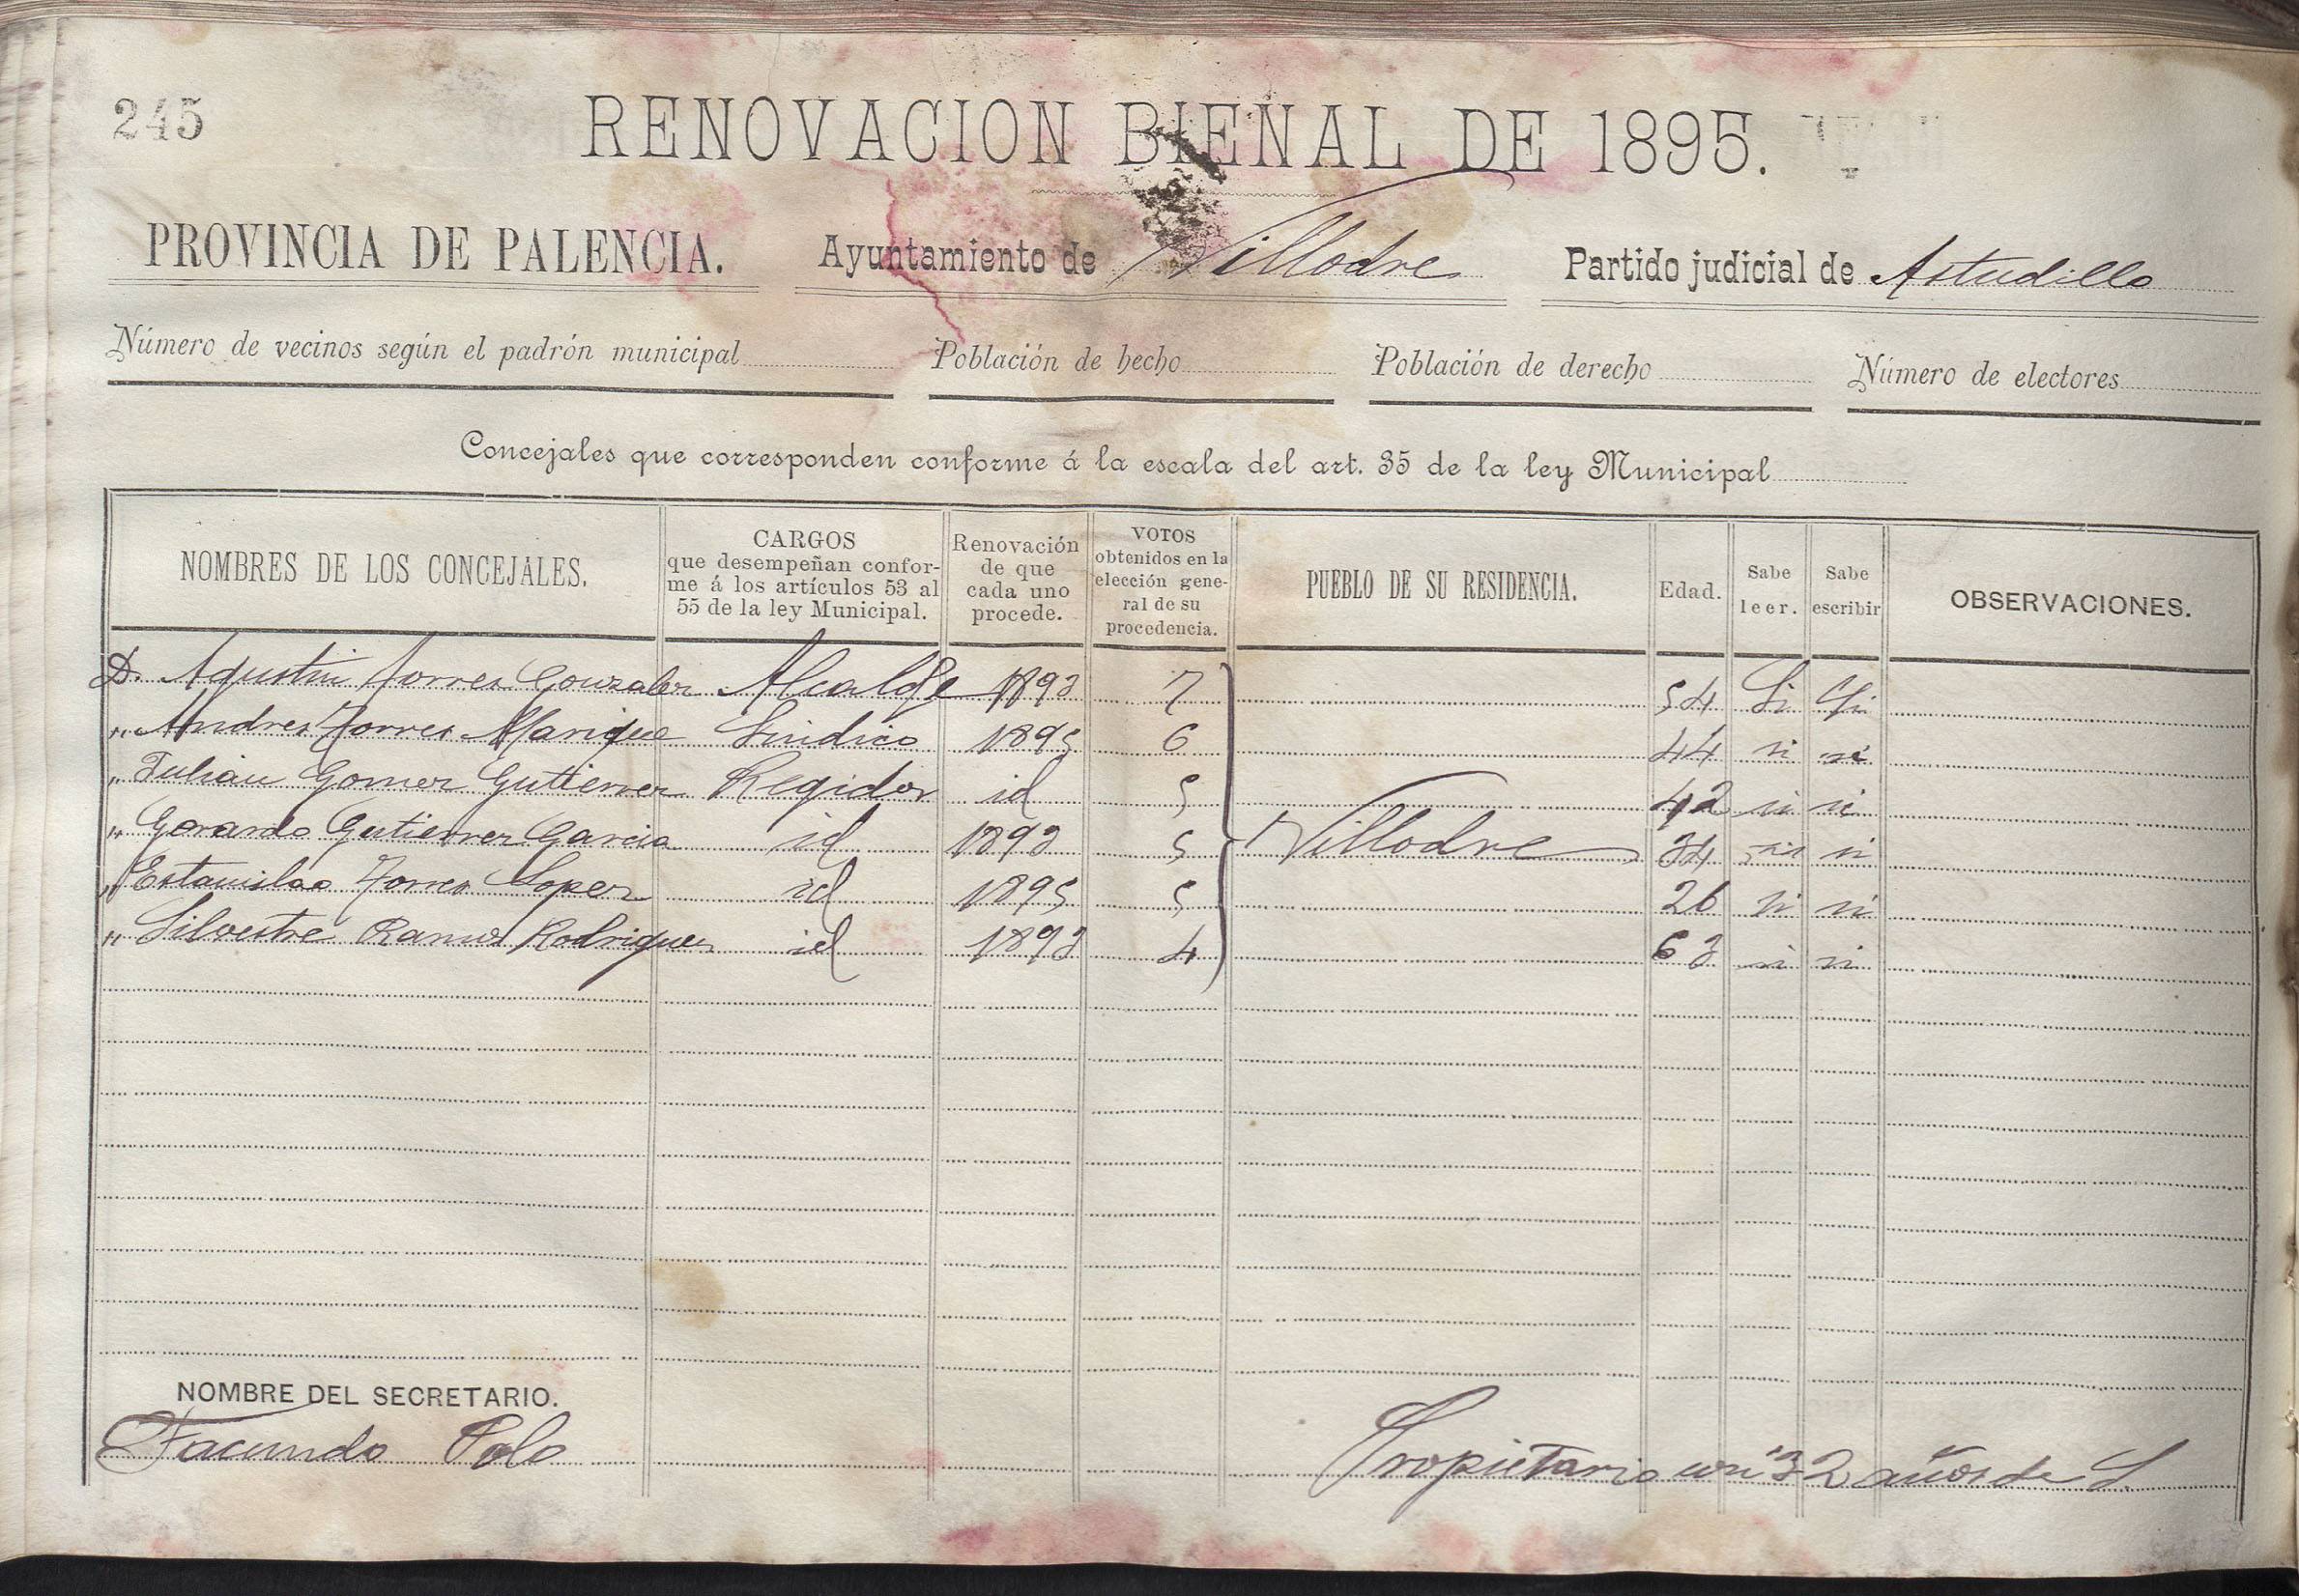 245
RENOVACION BIENAL DE 1895.
PROVINCIA DE PALENCIA. Ayuntamiento de Villodre Partido judicial de Astudillo
Número de vecinos según el padrón municipal Población de hecho Población de derecho Número de electores
Concejales que corresponden conforme á la escala del art. 35 de la ley Municipal
NOMBRES DE LOS CONCEJALES.
CARGOS
que desempeñan confor-
me á los artículos 53 al
55 de la ley Municipal.
Renovación
de que
cada uno
procede.
VOTOS
obtenidos en la
elección gene-
ral de su
procedencia.
PUEBLO DE SU RESIDENCIA.
Edad.
Sabe
leer.
Sabe
escribir
OBSERVACIONES.
D. Agustin Torres Gonzalez Alcalde 1893 7 54 Si Si
" Andres Torres Manrique Sindico 1895 6 44 si si
" Julian Gomez Gutierrez Regidor id 5 42 si si
" Gerardo Gutierrez Garcia id 1893 5 Villodre 34 si si
" Estanislao Torres Lopez id 1895 5 26 si si
" Silvestre Ramos Rodriguez id 1893 4 63 si si
NOMBRE DEL SECRETARIO.
Facundo Polo Propietario con 32 años de S.